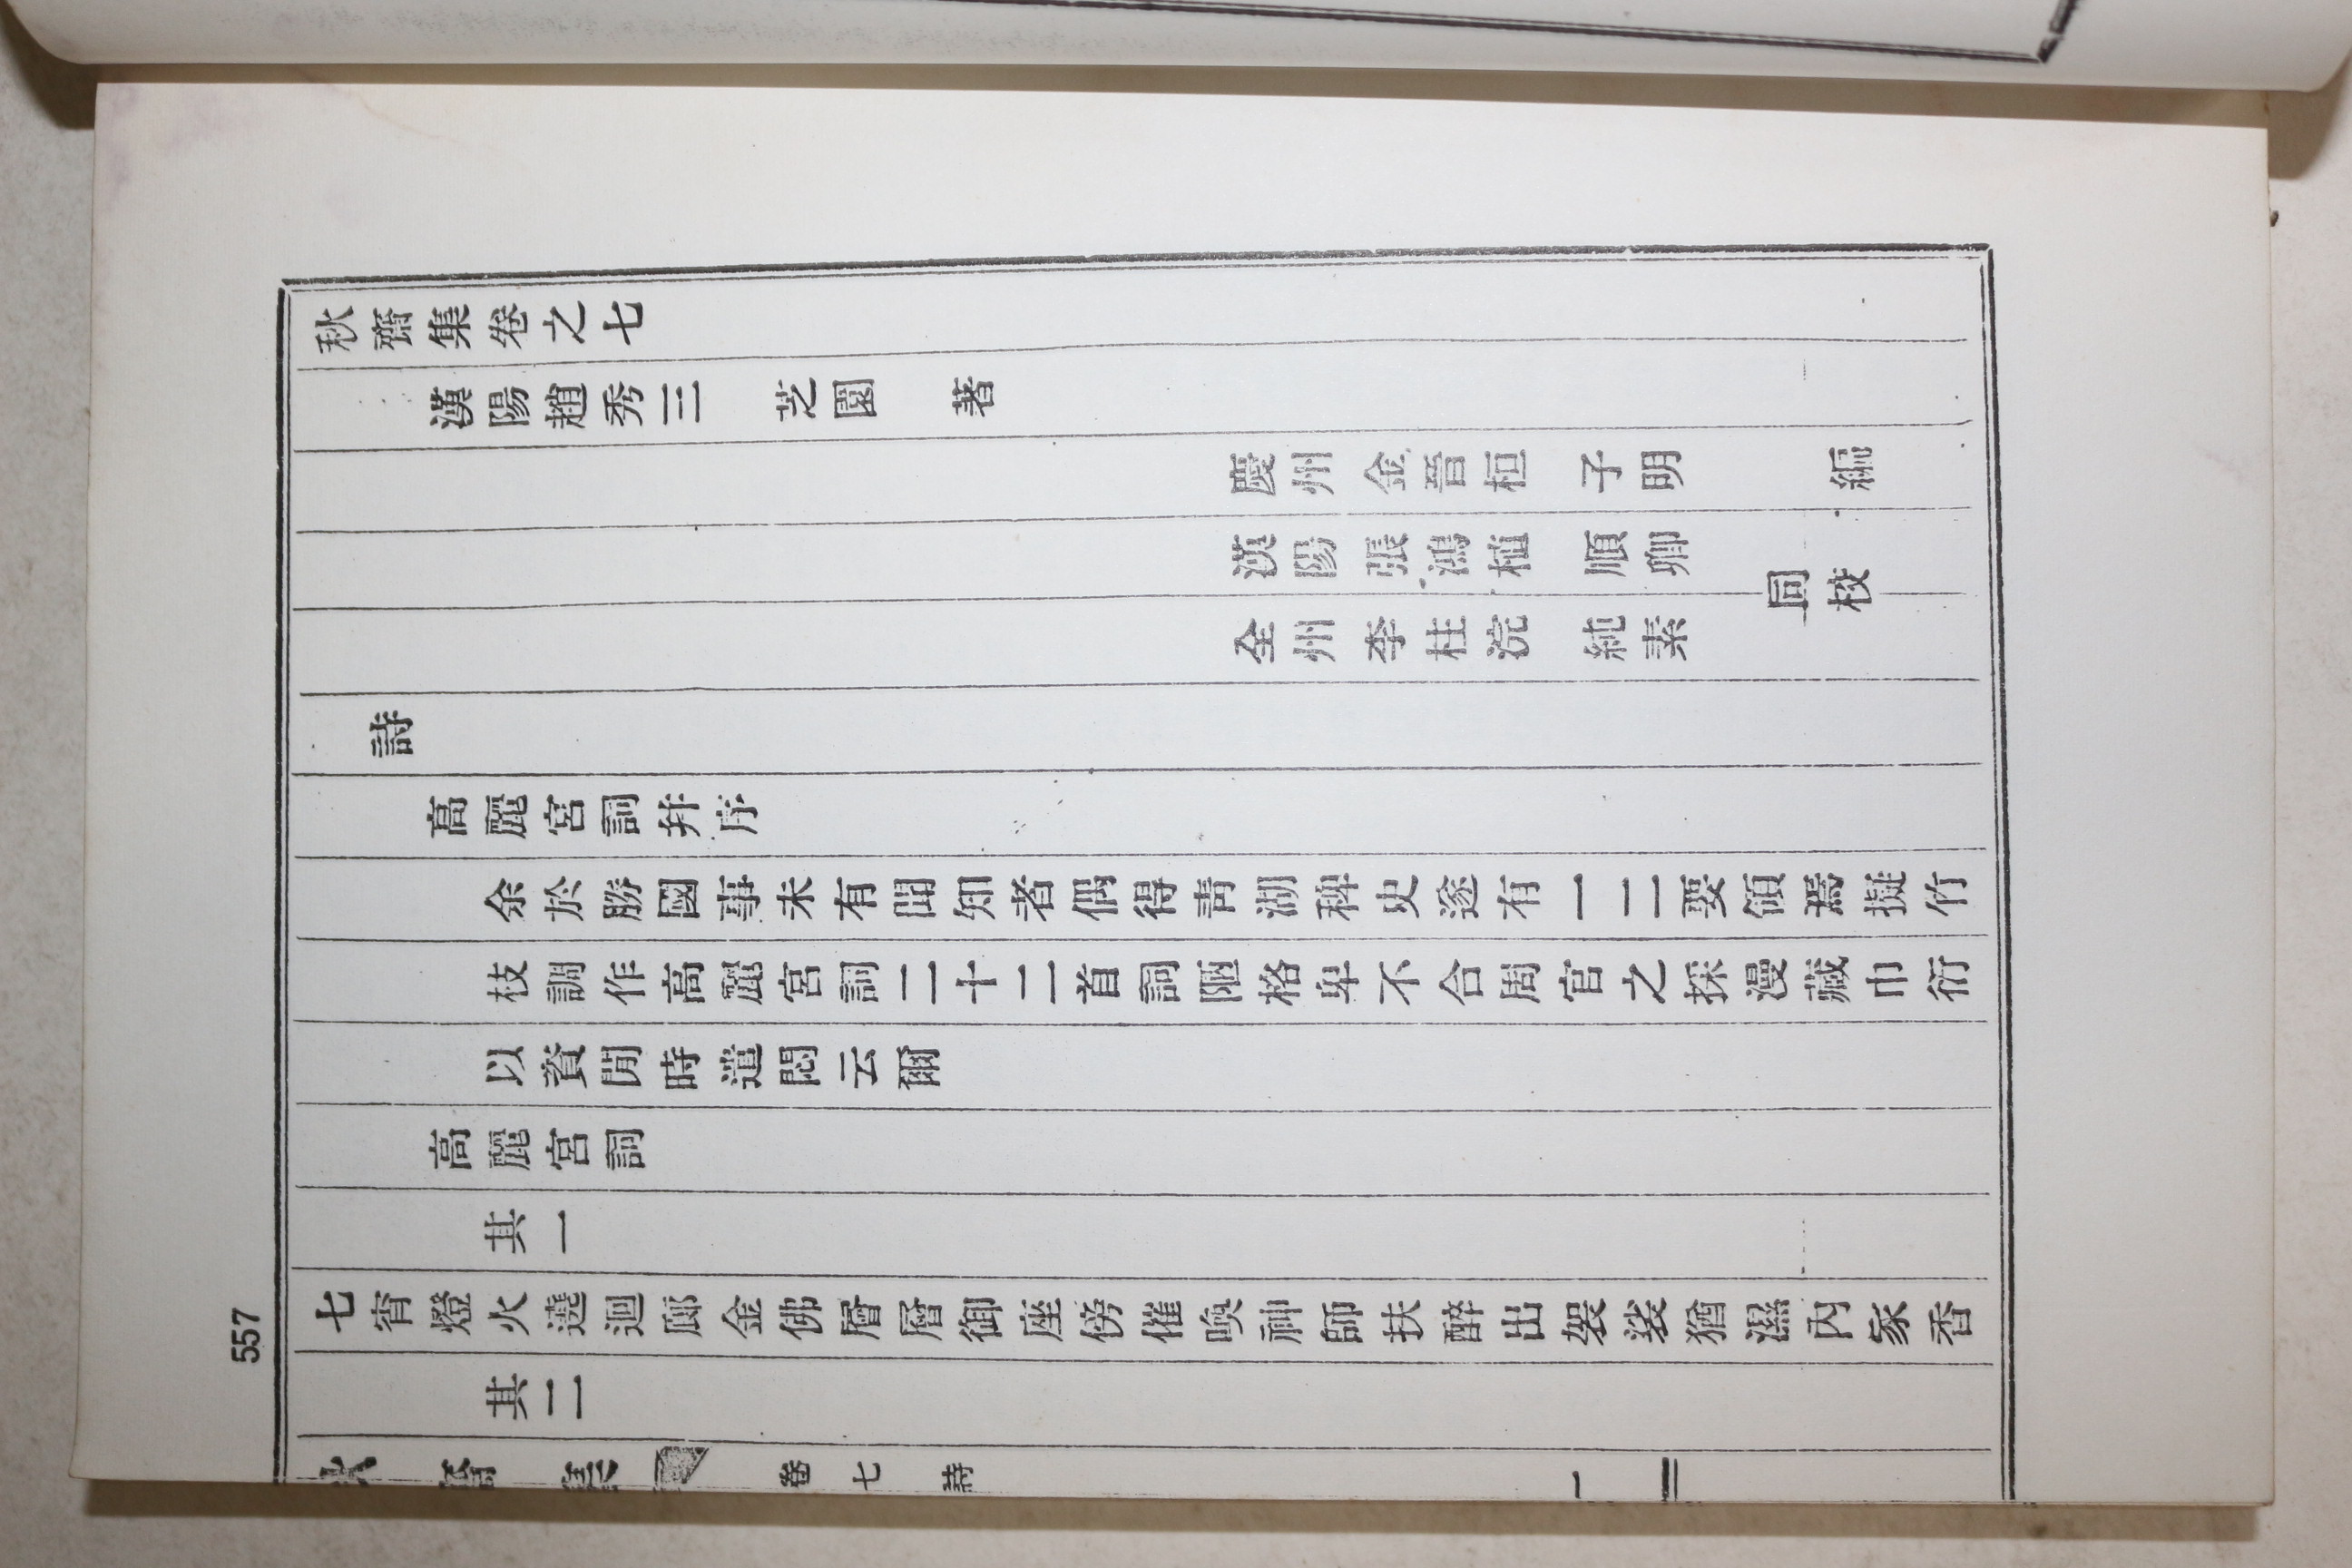 557
秋齋集卷之七
漢陽趙秀三 芝園 著
慶州金晉桓 子明 編
漢陽張鴻植 順卿
同校
全州李柱浣 純素
詩
高麗宮詞并序
余於勝國事未有聞知者偶得靑湖稗史遂有一二要領焉擬竹
枝調作高麗宮詞二十二首詞陋格卑不合周官之採漫藏巾衍
以資閒時遣悶云爾
高麗宮詞
其一
七宵燈火遶迴廊金佛層層御座傍催喚神師扶醉出袈裟猶濕內家香
其二
秋齋集 卷七 詩 一